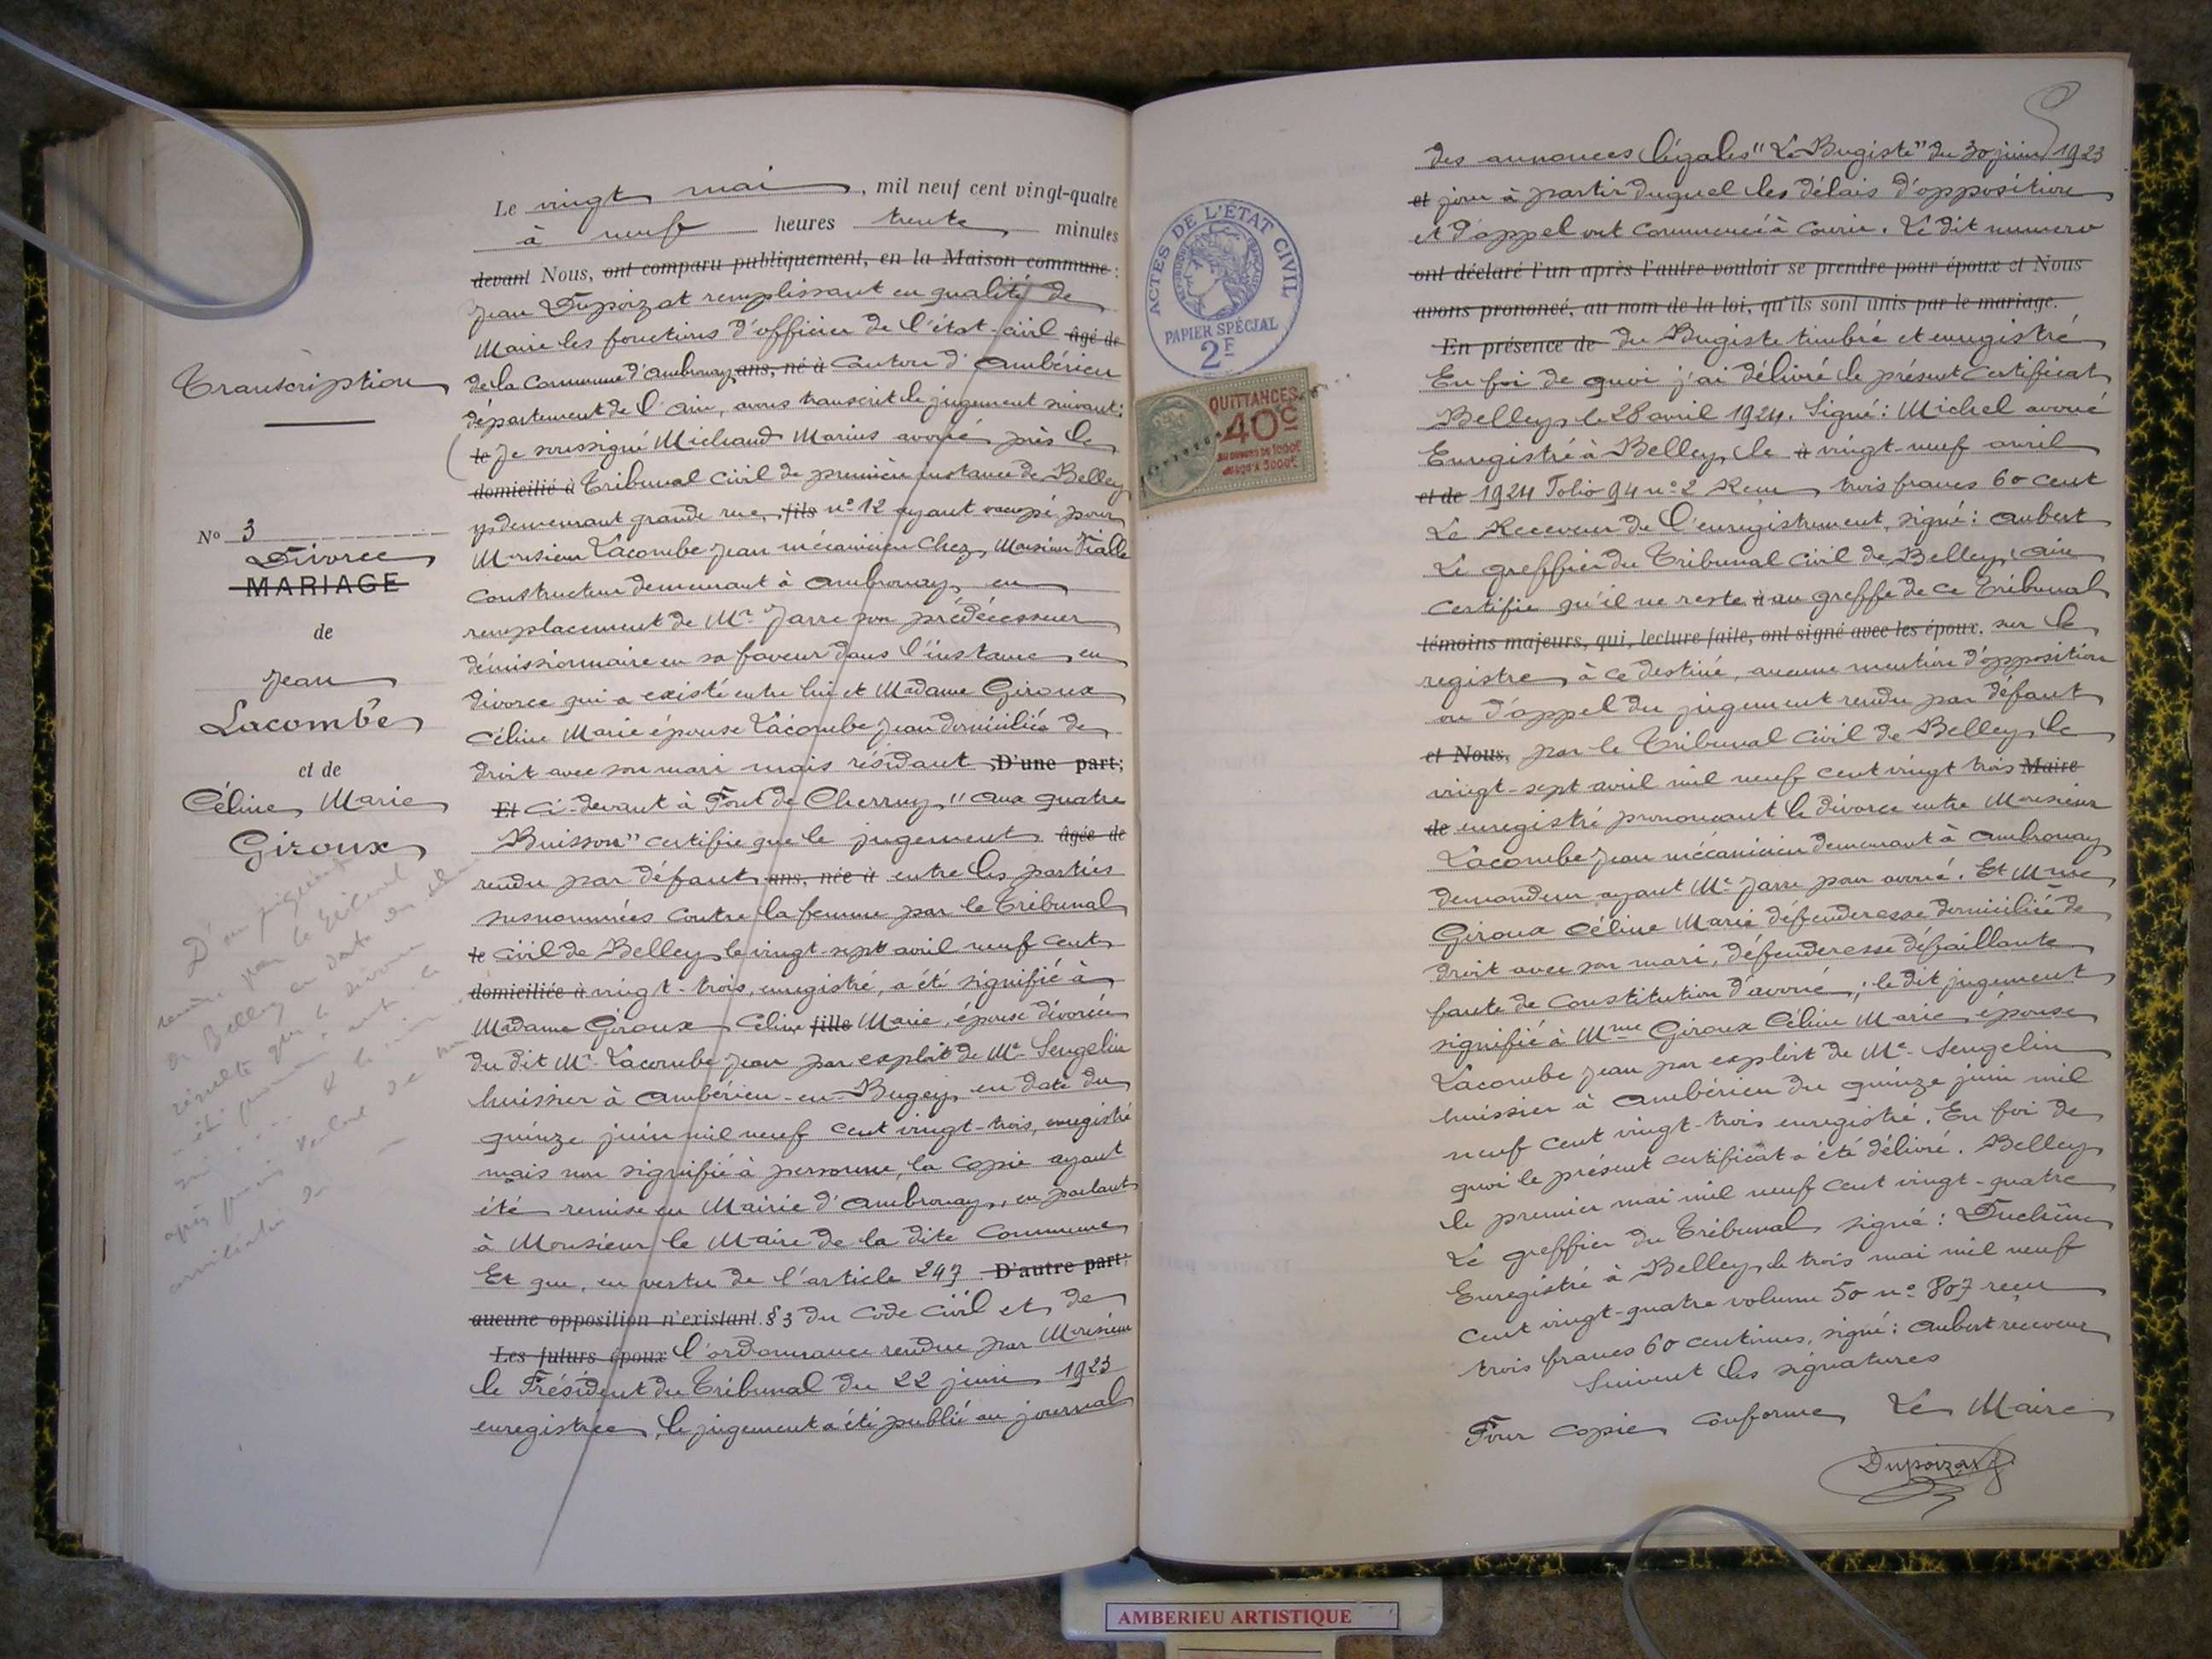 Transcription
N° 3
Divorce
MARIAGE
de
Jean
Lacombe
et de
Céline Marie
Giroux
D'un jugement
rendu par le tribunal
de Belley en date du
résulte que le divorce
a été prononcé
Le vingt mai, mil neuf cent vingt-quatre
à neuf heures trente minutes
devant Nous, ont comparu publiquement, en la Maison commune :
Jean Dupoizat remplissant en qualité de
Maire les fonctions d'officier de l'état-civil âgé de
de la Commune d'Ambronay ans, né à canton d'Ambérieu
département de l'Ain, avons transcrit le jugement suivant :
le Je soussigné Michaud Marius avoué près le
domicilié à Tribunal Civil de première instance de Belley
y demeurant grande rue, fils n° 12 ayant occupé pour
Monsieur Lacombe Jean mécanicien chez Monsieur Vialle
constructeur demeurant à Ambronay, en
remplacement de Me Jarre son prédécesseur
démissionnaire en sa faveur dans l'instance en
divorce qui a existé entre lui et Madame Giroux
Céline Marie épouse Lacombe Jean domiciliée de
droit avec son mari mais résidant D'une part;
Et ci-devant à Pont de Cherruy, "aux quatre
Buisson" certifie que le jugement âgée de
rendu par défaut, ans, née à entre les parties
susnommées contre la femme par le Tribunal
le Civil de Belley, le vingt-sept avril neuf cent
domiciliée à vingt-trois, enregistré, a été signifié à
Madame Giroux Céline fille Marie, épouse divorcée
du dit Mr Lacombe Jean par exploit de Me Sengelin
huissier à Ambérieu-en-Bugey, en date du
quinze juin mil neuf cent vingt-trois, enregistré
mais non signifié à personne, la copie ayant
été remise en Mairie d'Ambronay, en parlant
à Monsieur le Maire de la dite Commune
Et que, en vertu de l'article 247 D'autre part;
aucune opposition n'existant. § 3 du Code Civil et de
Les futurs époux l'ordonnance rendue par Monsieur
le Président du Tribunal du 22 juin 1923
enregistrée, le jugement a été publié au journal
ACTES DE L'ÉTAT CIVIL
PAPIER SPÉCIAL
2F
QUITTANCES
40c
des annonces légales "Le Bugiste" du 30 juin 1923
et jour à partir duquel les délais d'opposition
et d'appel ont commencé à courir. Le dit numero
ont déclaré l'un après l'autre vouloir se prendre pour époux et Nous
avons prononcé, au nom de la loi, qu'ils sont unis par le mariage.
En présence de du Bugiste timbré et enregistré
En foi de quoi j'ai délivré le présent certificat
Belley le 28 avril 1924. Signé : Michel avoué
Enregistré à Belley, le à vingt-neuf avril
et de 1924 Folio 94 n° 2 Reçu trois francs 60 cent
Le Receveur de l'enregistrement, signé : Aubert
Le greffier du Tribunal Civil de Belley, Ain
certifie qu'il ne reste à au greffe de ce Tribunal
témoins majeurs, qui, lecture faite, ont signé avec les époux, sur le
registre à ce destiné, aucune mention d'opposition
ou d'appel du jugement rendu par défaut
et Nous, par le Tribunal Civil de Belley, le
vingt-sept avril mil neuf cent vingt trois Maire
de enregistré prononçant le divorce entre Monsieur
Lacombe Jean mécanicien demeurant à Ambronay
demandeur ayant Me Jarre pour avoué. Et Mme
Giroux Céline Marie défenderesse domiciliée de
droit avec son mari, défenderesse défaillante
faute de constitution d'avoué ; le dit jugement
signifié à Mme Giroux Céline Marie, épouse
Lacombe Jean par exploit de Me Sengelin
huissier à Ambérieu du quinze juin mil
neuf cent vingt-trois enregistré. En foi de
quoi le présent certificat a été délivré. Belley
le premier mai mil neuf cent vingt-quatre
Le greffier du Tribunal, signé : Duchêne
Enregistré à Belley, le trois mai mil neuf
cent vingt-quatre volume 50 n° 807 reçu
trois francs 60 centimes, signé : Aubert receveur
Suivent les signatures
Pour copie conforme Le Maire
Dupoizat
AMBERIEU ARTISTIQUE